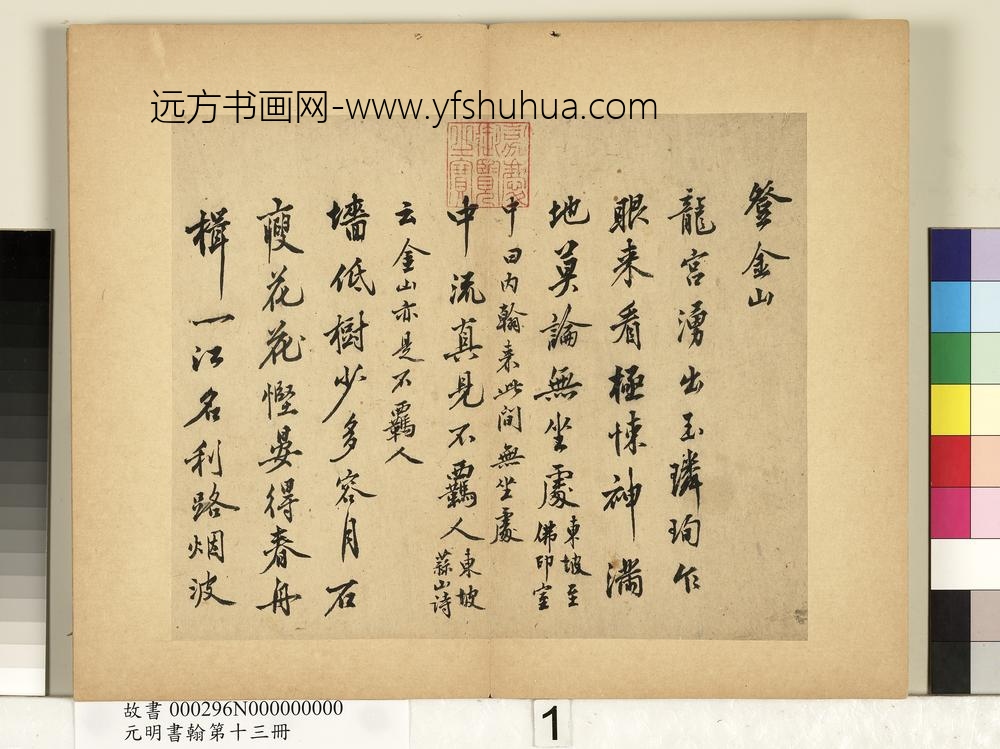 远方书画网-www.yfshuhua.com
登金山
龍宮湧出玉璘珣乍
眼来看極悚神满
地莫論無坐處東坡至
佛印室
中曰内翰来此间無坐處
中流真見不羈人東坡
蒜山诗
云金山亦是不羈人
墙低樹少多容月石
瘦花花慳晏得春舟
楫一江名利路烟波
嘉慶
御覽
之寶
故書 000296N000000000
元明書翰第十三冊
1